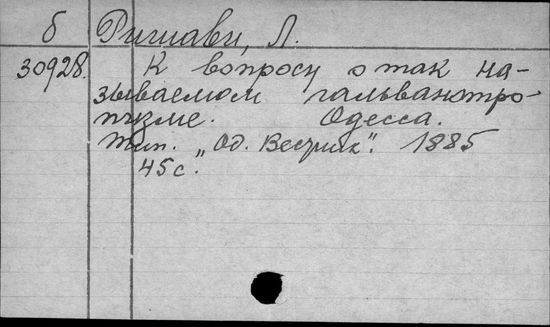 б Ришави, Л.
30928. К вопросу о так на-
зываемом гальванотро-
пизме. Одесса.
Тип. „Од. Вестник". 1885
45 с.